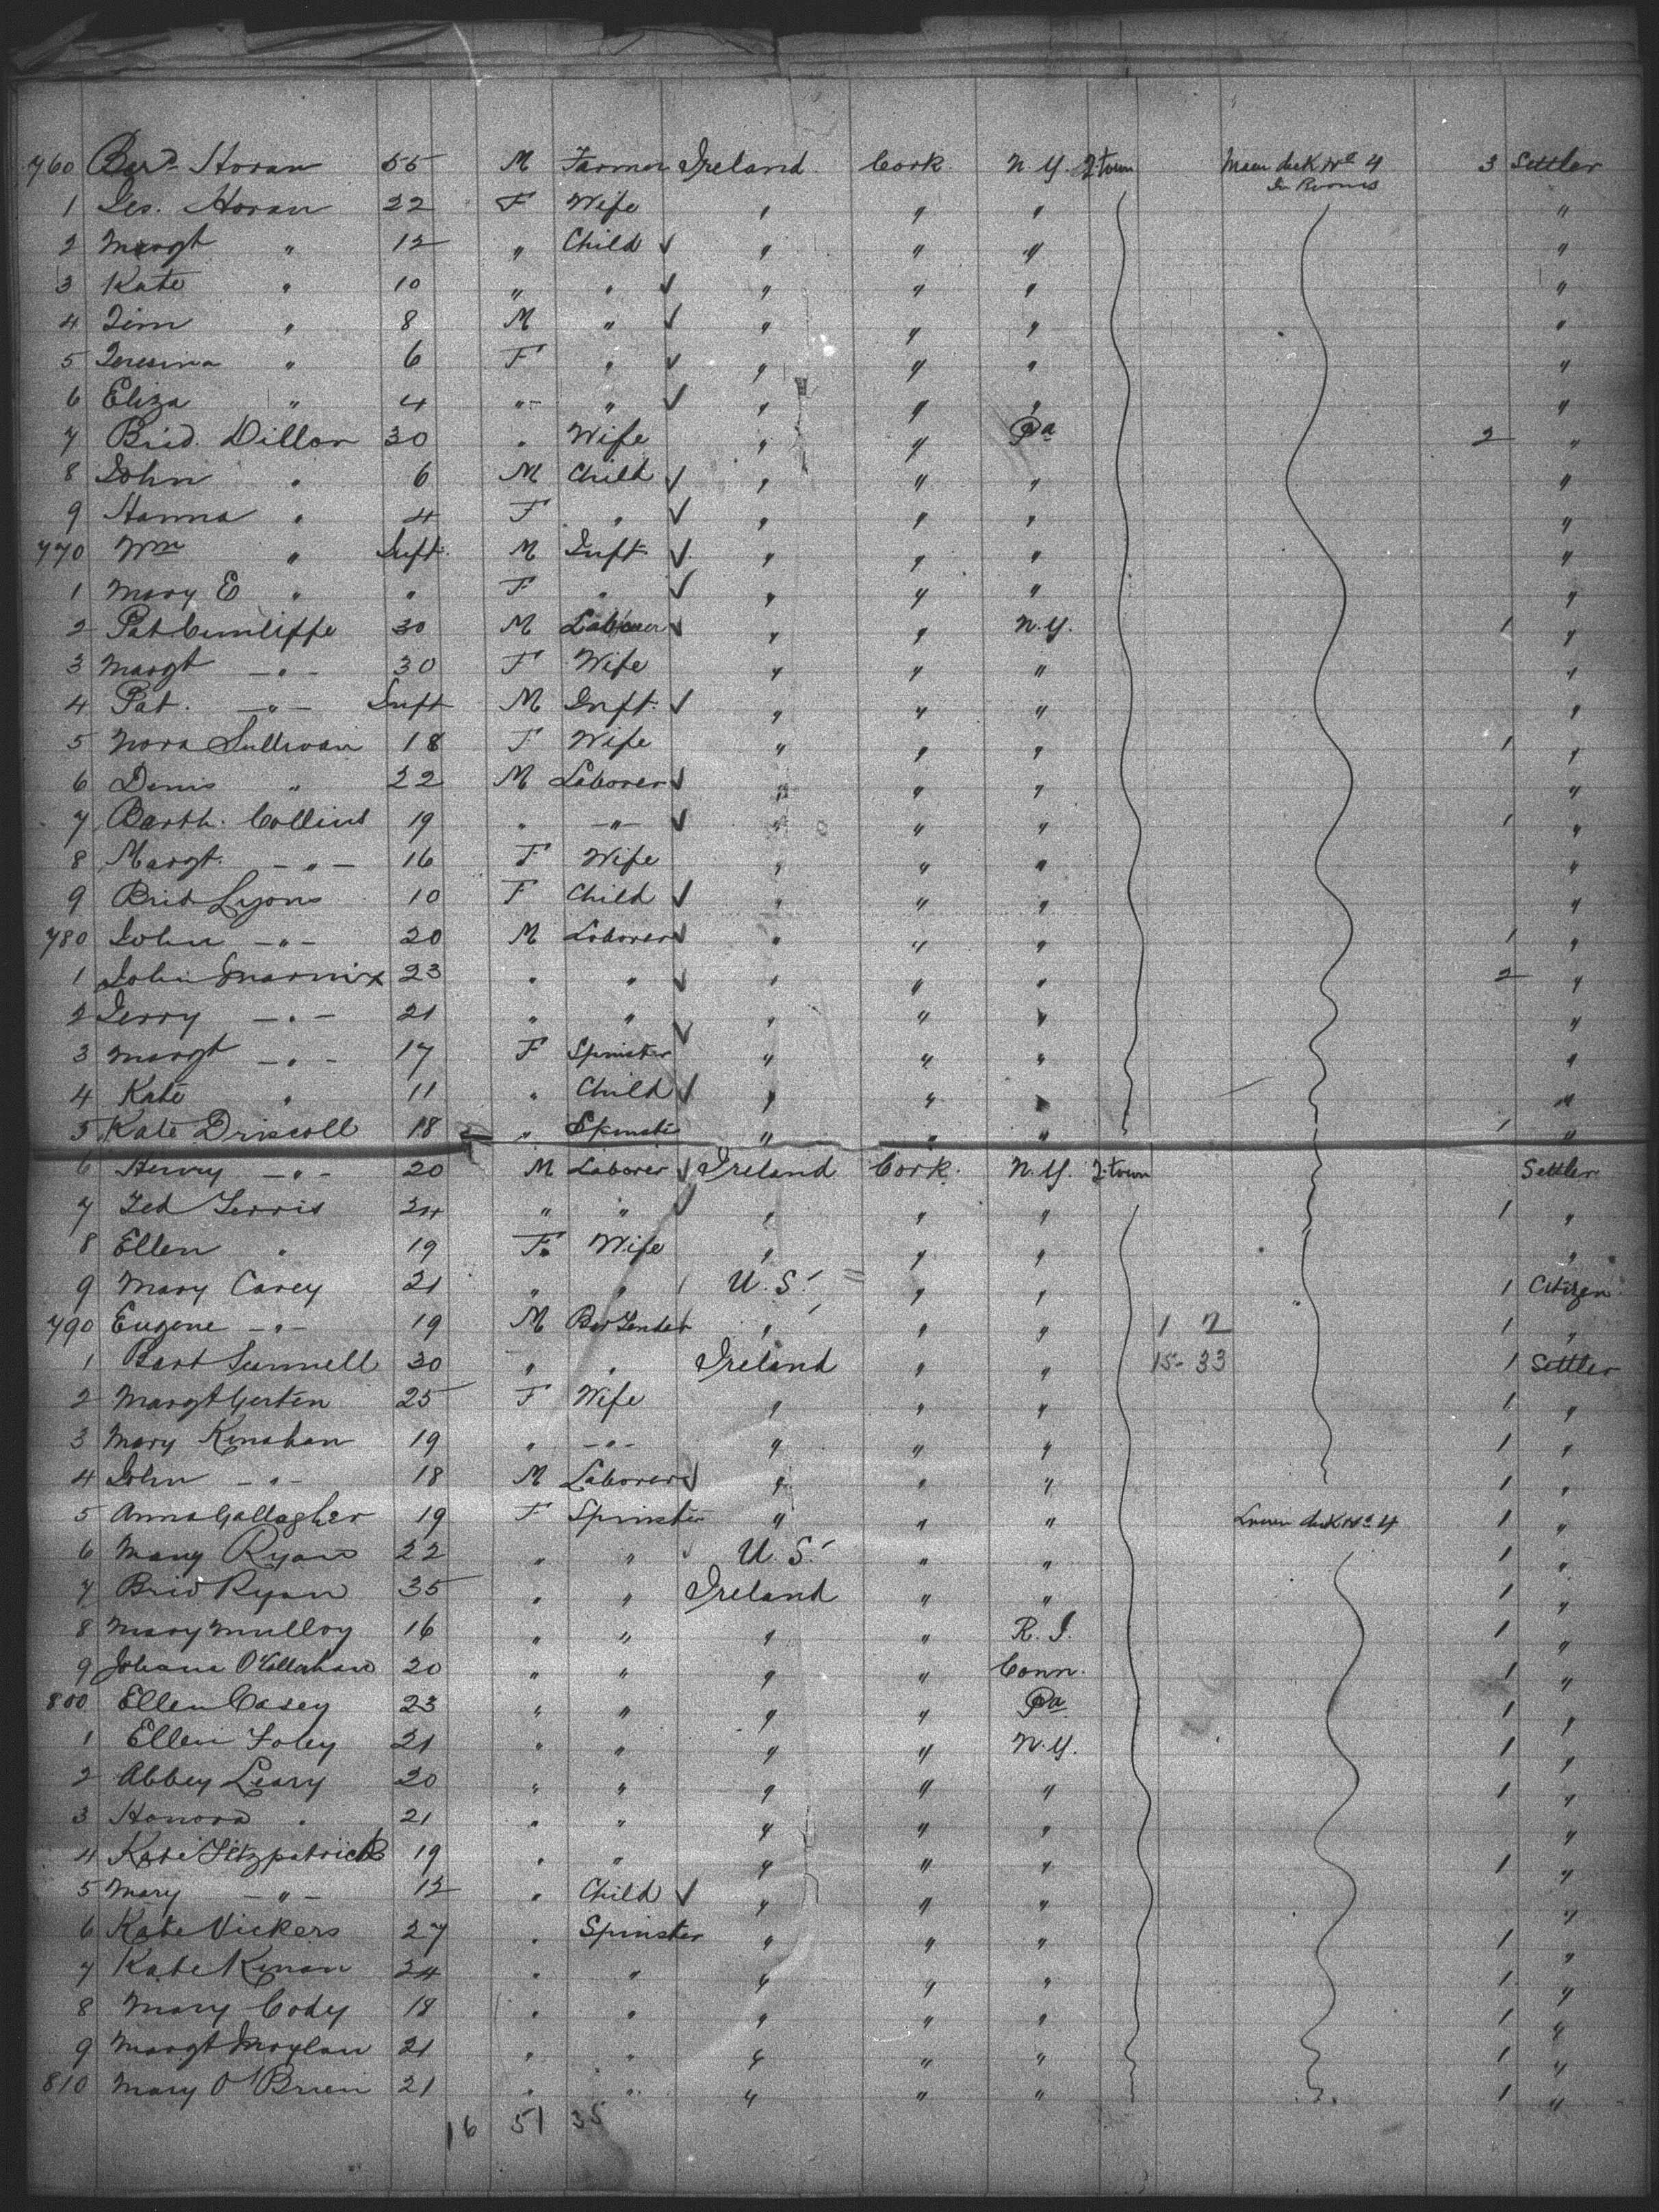 760 Bar. Horan 55 M Farmer Ireland Cork N.Y. Q.town Main deck No 4 3 Settler
In Rooms
1 Horan 22 F Wife " " " "
2 Margt " 12 " Child ✓ " " " "
3 Kate " 10 " " ✓ " " " "
4 Tim " 8 M " ✓ " " " "
5 " 6 F " ✓ " " " "
6 Eliza " 4 " " ✓ " " " "
7 Brid. Dillon 30 " Wife " " Pa 2 "
8 John " 6 M Child ✓ " " " "
9 Hanna " 4 F " ✓ " " " "
770 Wm " Inft. M Inft. ✓ " " " "
1 Mary E " " F " ✓ " " " "
2 Pat Cunliffe 30 M Laborer ✓ " " N.Y. 1 "
3 Margt -"- 30 F Wife " " " "
4 Pat. -"- Inft M Inft. ✓ " " " "
5 Nora Sullivan 18 F Wife " " " 1 "
6 Denis " 22 M Laborer ✓ " " " "
7 Barth. Collins 19 " -"- ✓ " " " 1 "
8 Margt. -"- 16 F Wife " " " "
9 Brid Lyons 10 F Child ✓ " " " "
780 John -"- 20 M Laborer ✓ " " " 1 "
1 John 23 " " ✓ " " " 2 "
2 Jerry -"- 21 " " ✓ " " " "
3 Margt -"- 17 F Spinster " " " "
4 Kate " 11 " Child ✓ " " " "
5 Kate Driscoll 18 " Spinster " " " 1 "
6 Henry -"- 20 M Laborer ✓ Ireland Cork. N.Y. Q.town Settler
7 24 " " ✓ " " " 1 "
8 Ellen " 19 F. Wife " " " "
9 Mary Carey 21 " " U.S. = " " 1 Citizen
790 Eugene -"- 19 M BarTender " " " 1 2 1 "
1 Bart 30 " " Ireland " " 15-33 1 Settler
2 Margt 25 F Wife " " " 1 "
3 Mary Kinahan 19 " -"- " " " 1 "
4 John -"- 18 M Laborer ✓ " " " 1 "
5 Anna Gallagher 19 F Spinster " " " Lower deck No 4 1 "
6 Mary Ryan 22 " " U.S. " " 1 "
7 Brid Ryan 35 " " Ireland " " 1 "
8 Mary Mulloy 16 " " " " R.I. 1 "
9 Johana O'Callahan 20 " " " " Conn. 1 "
800 Ellen Casey 23 " " " " Pa 1 "
1 Ellen Foley 21 " " " " N.Y. 1 "
2 Abbey Leary 20 " " " " " 1 "
3 Honora " 21 " " " " " "
4 Kate Fitzpatrick 19 " " " " " 1 "
5 Mary -"- 12 " Child ✓ " " " "
6 Kate Vickers 27 " Spinster " " " 1 "
7 Kate Kinan 24 " " " " " 1 "
8 Mary Cody 18 " " " " " 1 "
9 Margt Moylan 21 " " " " " 1 "
810 Mary O'Brien 21 " " " " " 1 "
16 51 35